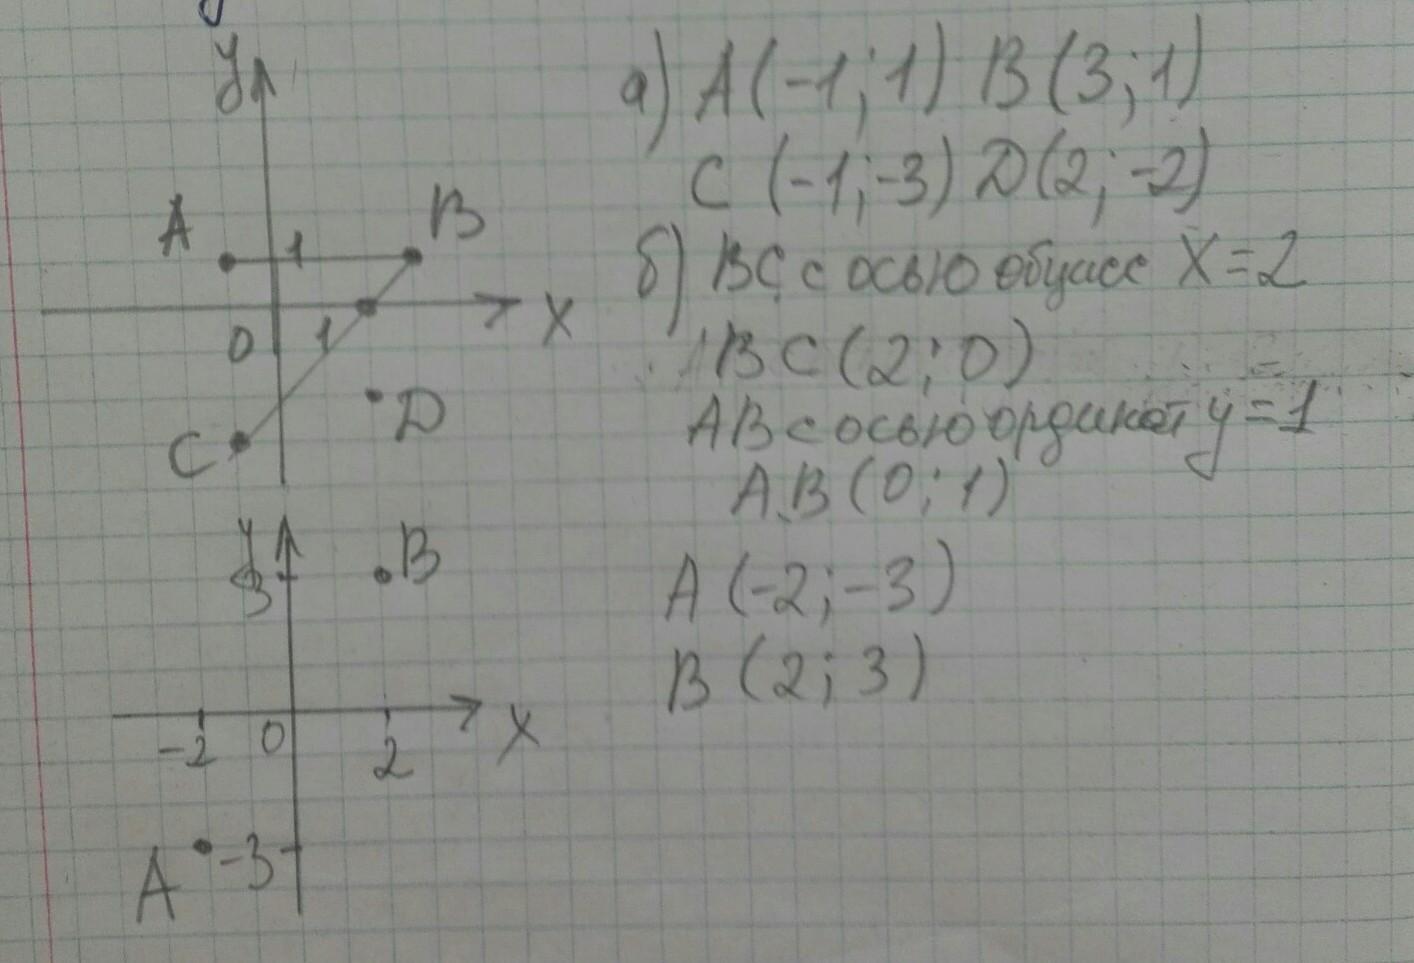 y
A
B
1
0
1
X
C
D
а) A(-1; 1) B(3; 1)
C (-1; -3) D(2; -2)
б) BC с осью обцисс X=2
BC (2; 0)
AB с осью ординат y=1
AB (0; 1)
y
3
B
-2
0
2
X
A
-3
A (-2; -3)
B (2; 3)